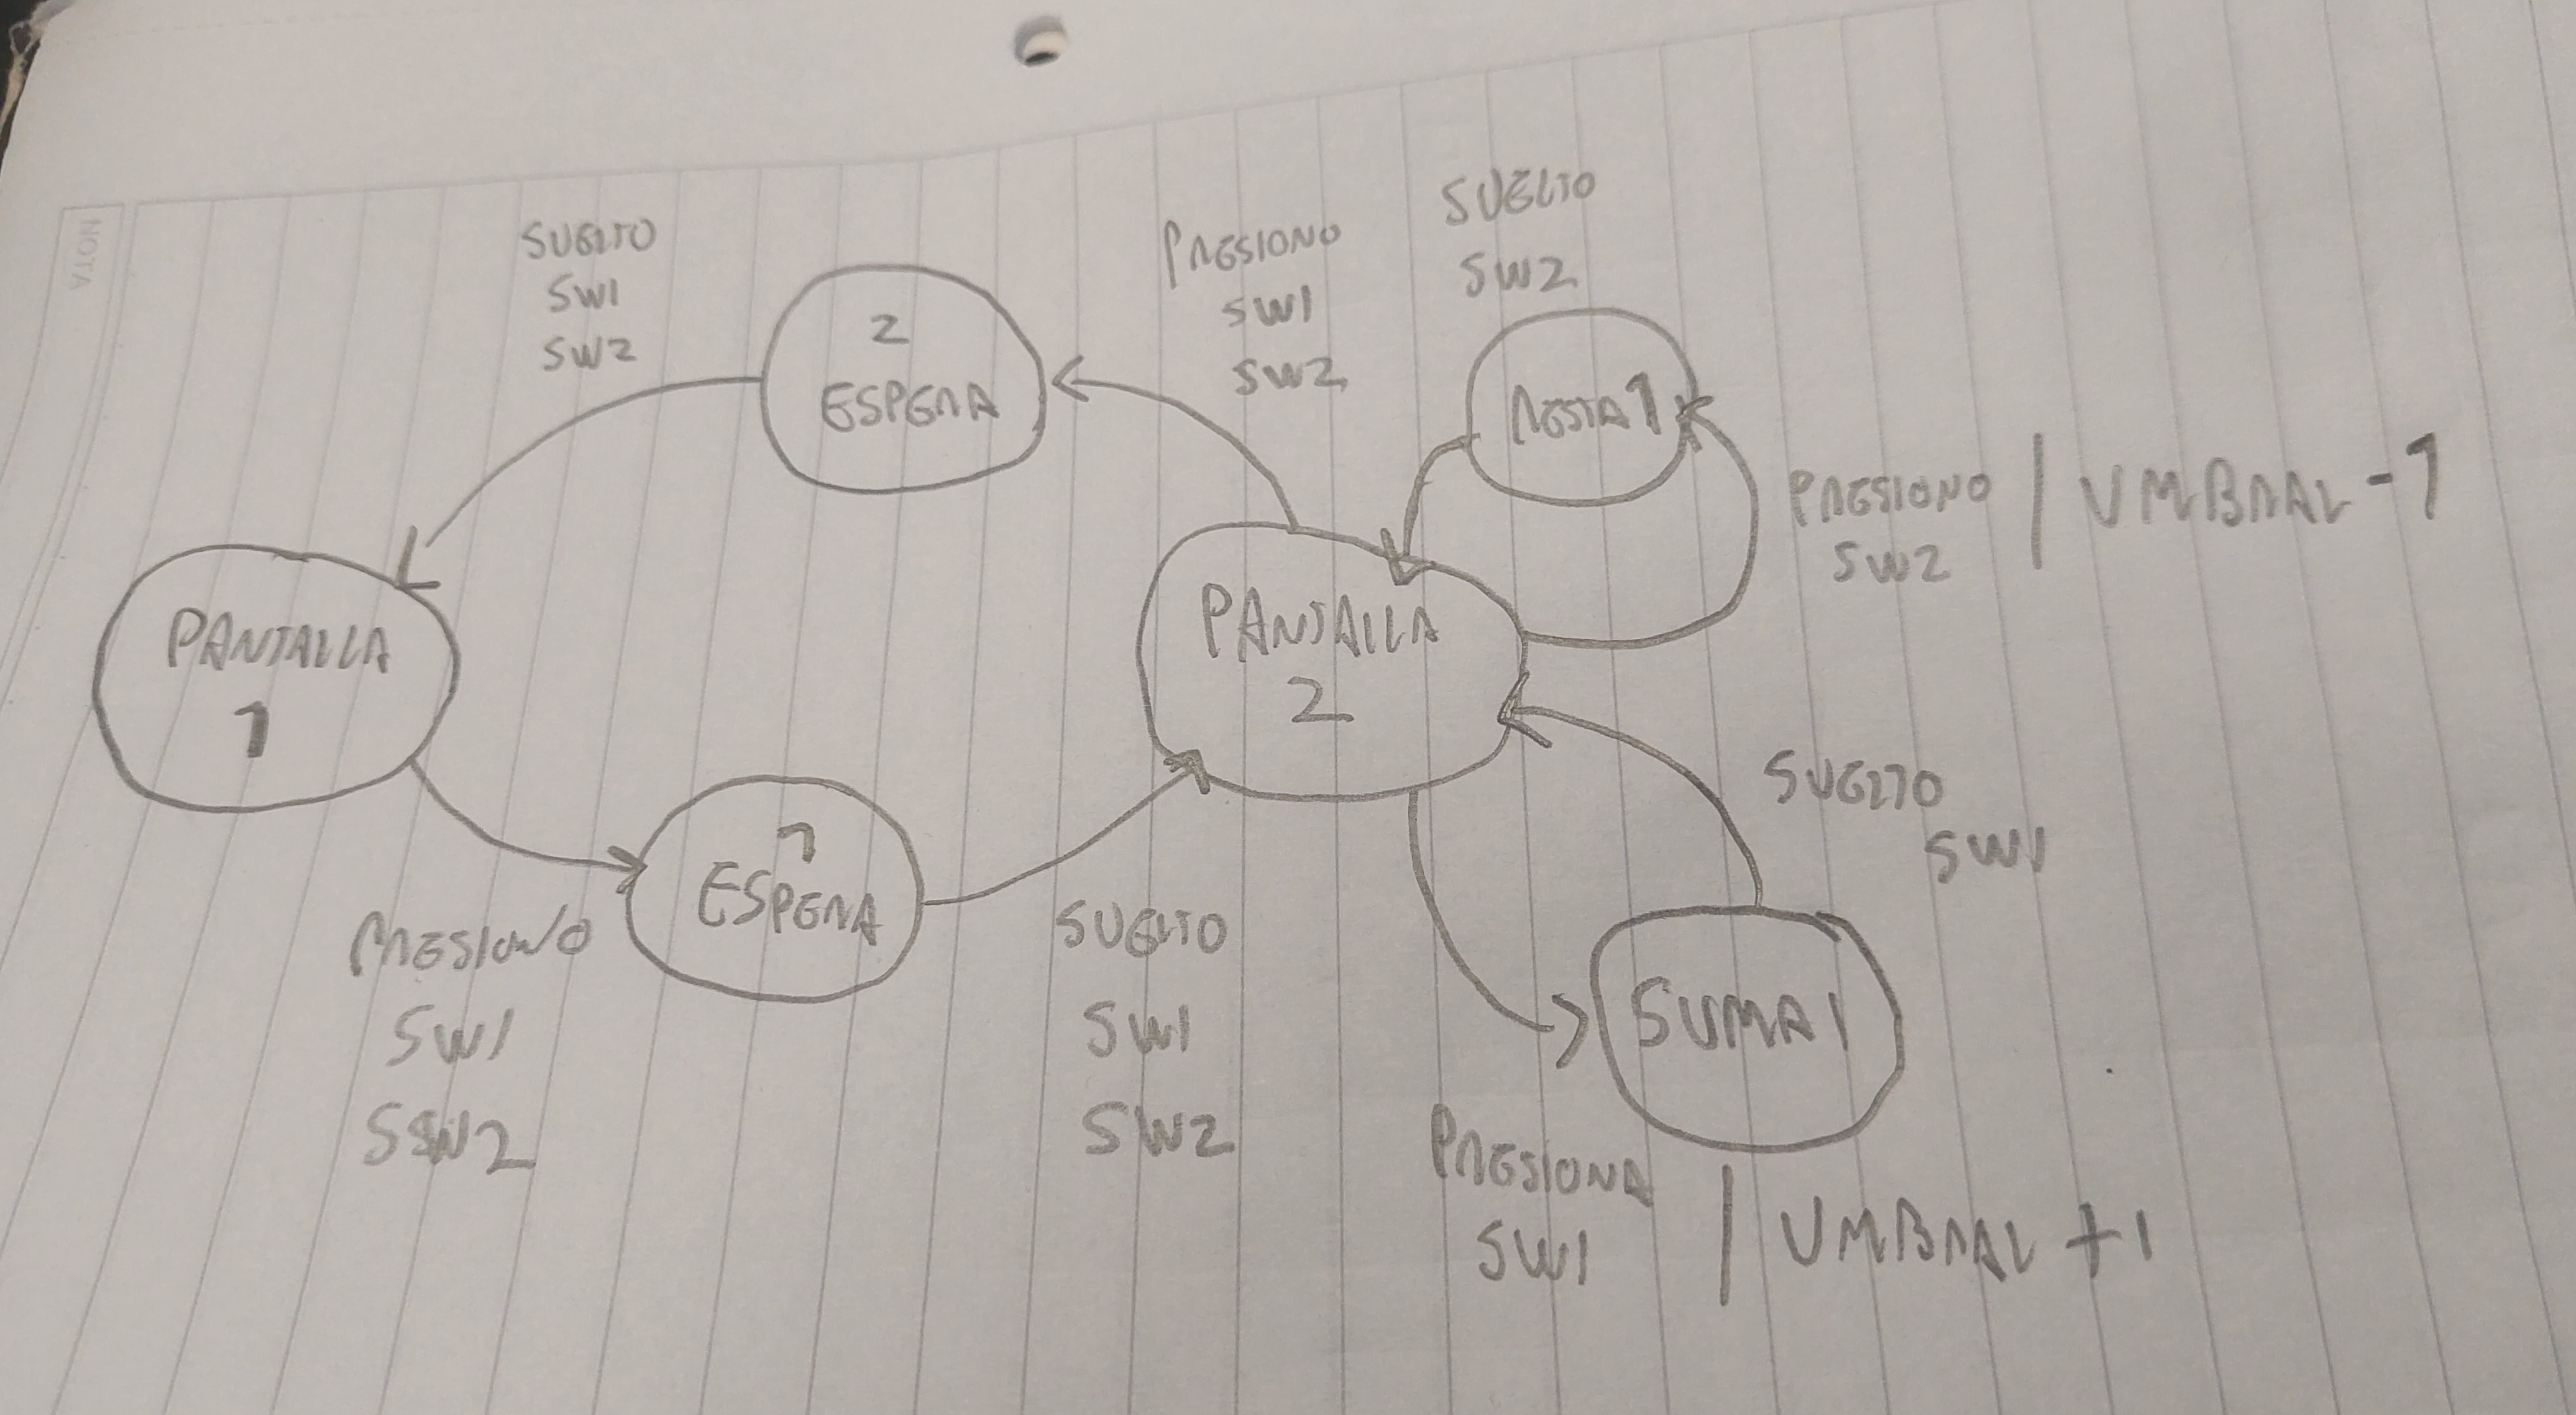 NOTA
SUELTO
SW1
SW2
2
ESPERA
PRESIONO
SW1
SW2
SUELTO
SW2
RESTA 1
PRESIONO / UMBRAL -1
SW2
PANTALLA
1
PANTALLA
2
1
ESPERA
PRESIONO
SW1
SSW2
SUELTO
SW1
SW2
SUELTO
SW1
SUMA 1
PRESIONA
SW1 / UMBRAL +1